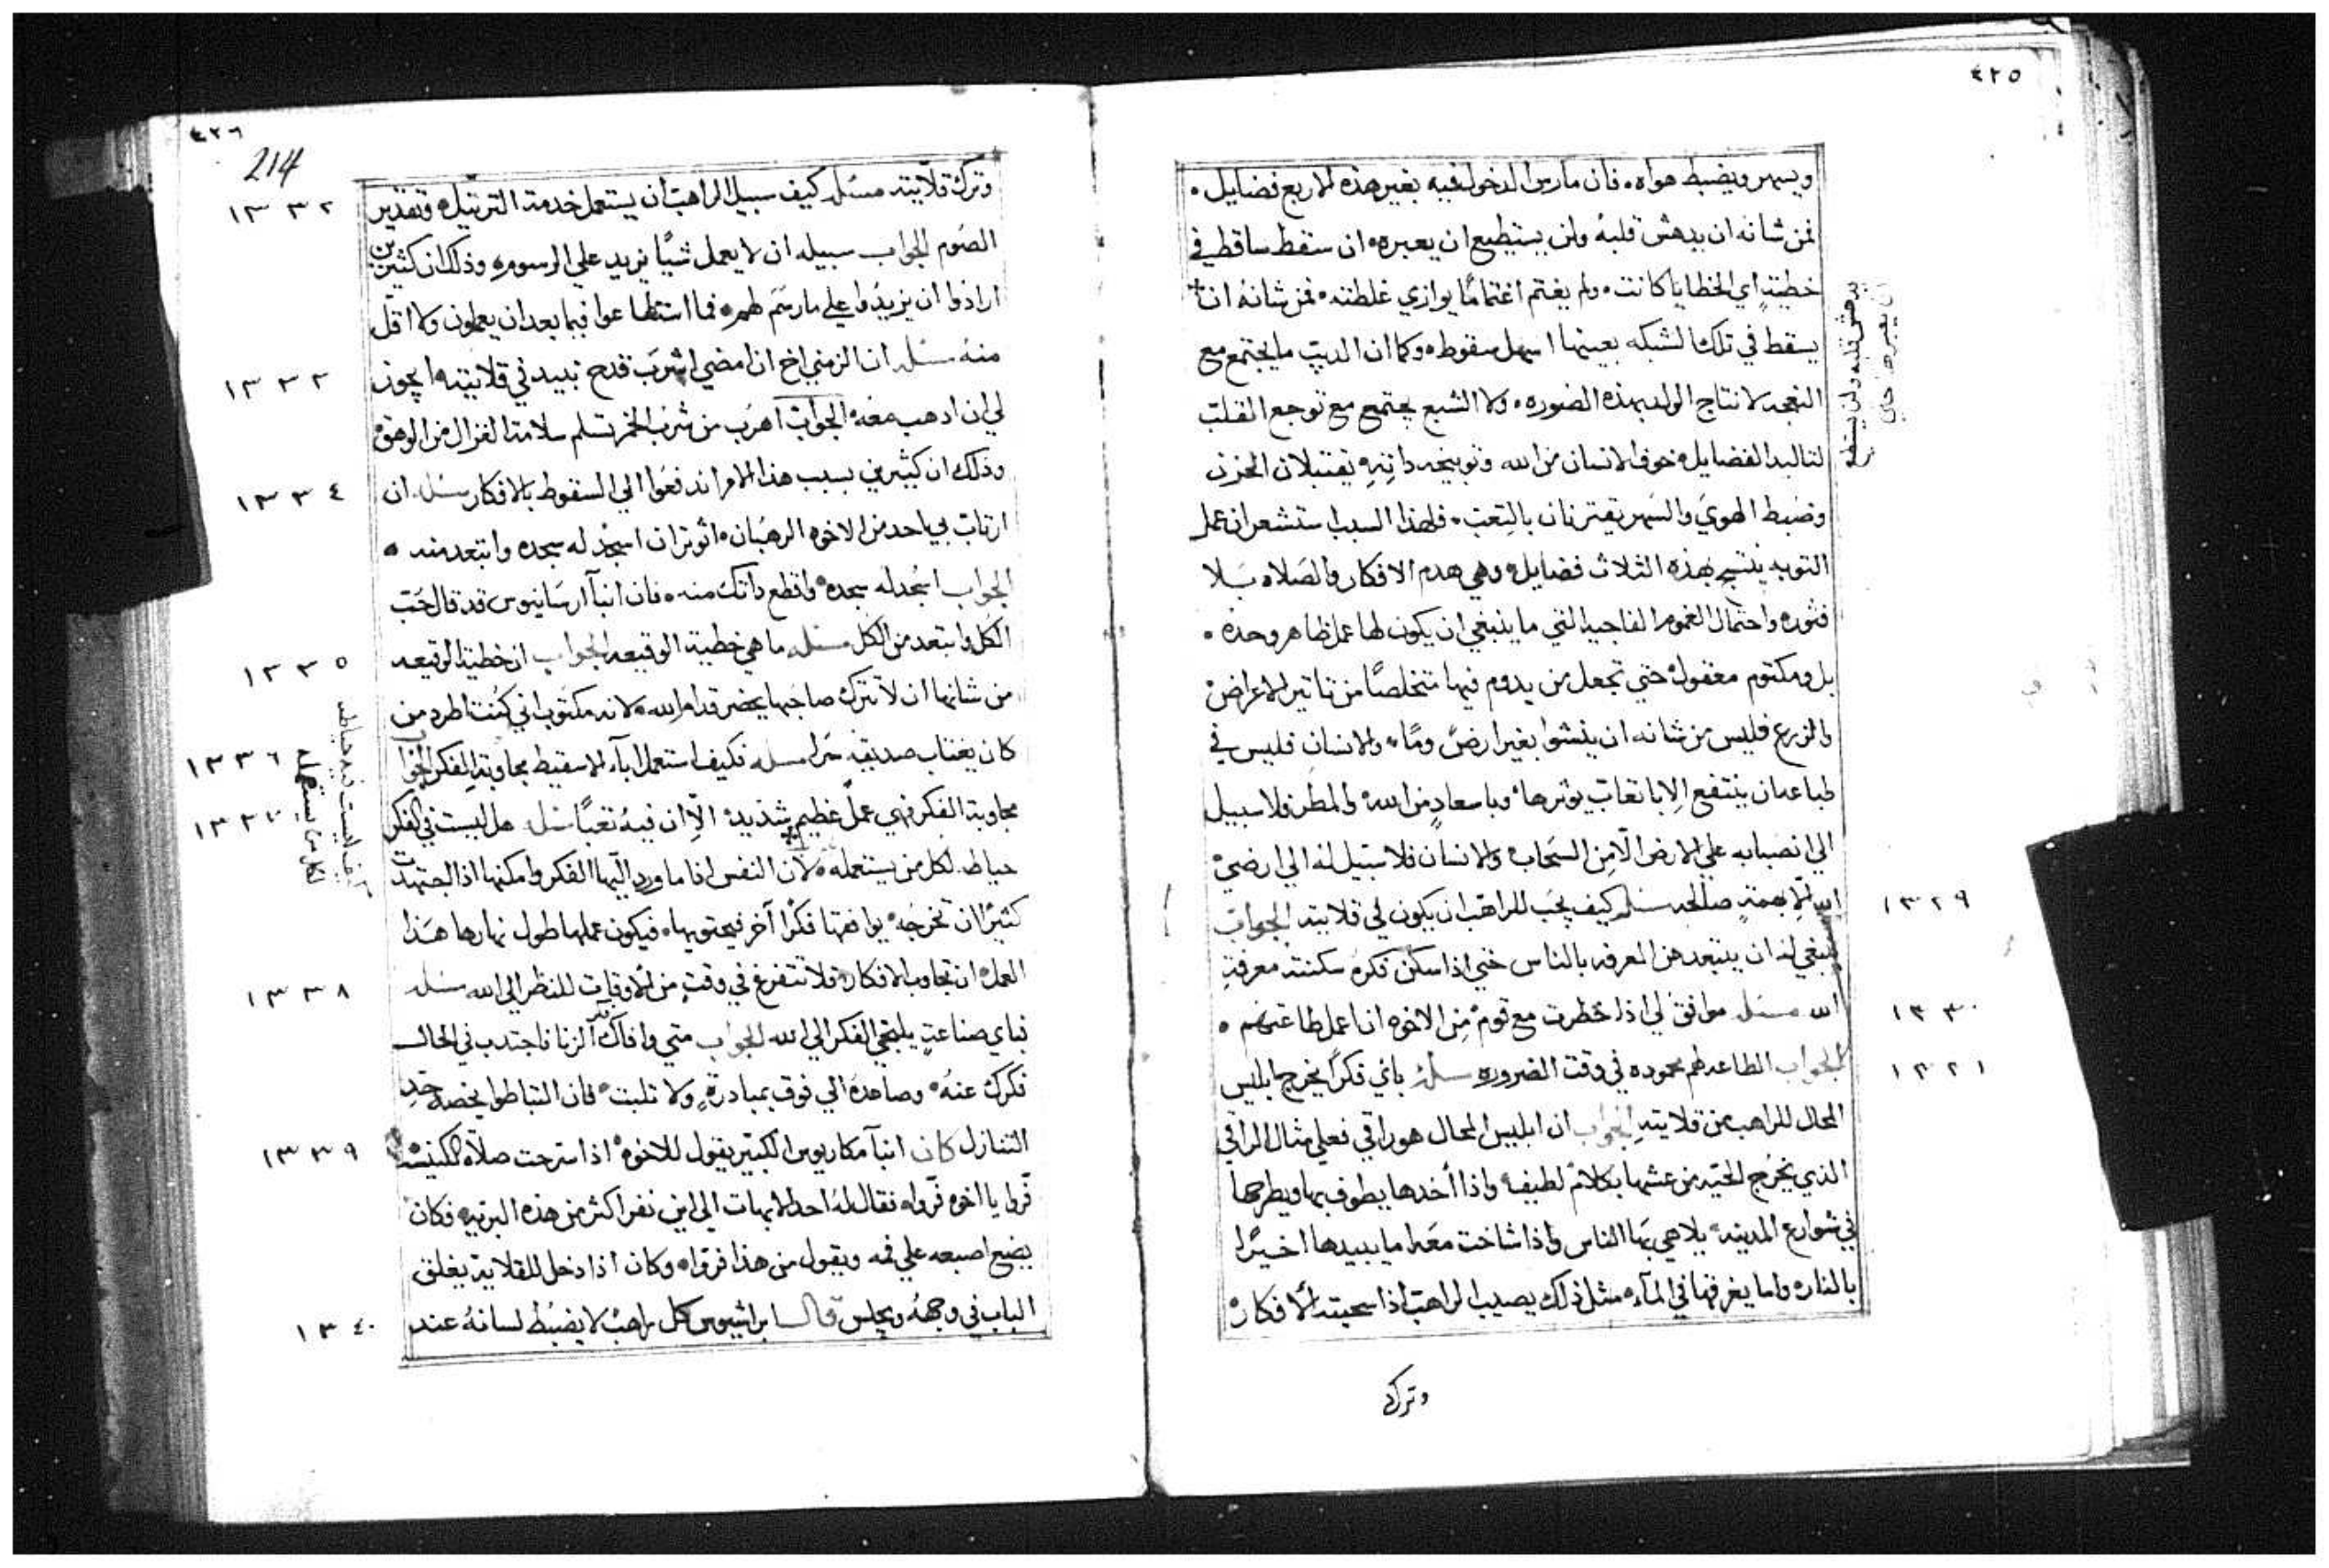 ٤٢٥
ويسهر ويضبط هواه. فان مارس الدخول فيه بغير هذه الاربع فضايل.
فمن شانه ان يدهش قلبه ولن يستطيع ان يعبره. ان سقط ساقط في
خطيةٍ اي الخطايا كانت. ولم يغتم اغتمامًا يوازي غلطته. فمن شانه ان
يسقط في تلك الشبكه بعينها اسهل سقوط. وكما ان الديب ما يجتمع مع
النعجه لانتاج الولد بهذه الصوره. ولا الشبع يجتمع مع توجع القلب
لتاليد الفضايل. خوف الانسان من الله وتوبيخه داته يقتبلان الحزن
وضبط الهوي والسهر يقترنان بالتعب. فلهذا السبب استشعر ان عمل
التوبه ينتسج بهذه الثلاث فضايل. وهي هدم الافكار والصلاه بلا
فتوره واحتمال الغموم الفاجيه التي ما ينبغي ان يكون لها عمل ظاهر وحده.
بل ومكتوم معقول. حتي تجعل من يدوم فيها متخلصًا من تاتير الاعراض
والزرع فليس من شانه ان ينشوا بغير ارض وماء. والانسان فليس في
طباعه ان ينتفع الا باتعاب يوثرها. وباسعادٍ من الله. والمطر فلا سبيل
الي انصبابه علي الارض الا من السحاب. والانسان فلا سبيل له الي ارضي
الله الا بهمةٍ صالحه مسله كيف يجب للراهب ان يكون في قلايته الجواب
ينبغي له ان يبتعد من المعرفه بالناس حتي اذا سكن فكره سكنته معرفة
الله مسله موافق لي اذا حظرت مع قوم من الاخوه انا عمل طاعتهم.
الجواب الطاعه لهم محموده في وقت الضروره مسله باي فكرًا يخرج ابليس
المحال للراهب من قلايته الجواب ان ابليس المحال هو راقي فعلي مثال الراقي
الذي يخرج الحيه من عشها بكلام لطيف. واذا أخدها يطوف بها ويطرحها
في شوارع المدينه. يلاهي بها الناس واذا شاخت معه اما يبيدها اخيرًا
بالنار. واما يغرقها في المآء. مثل ذلك يصيب الراهب اذا سحبته الافكار
وترك
يدهش قلبه ولن يستطيع
ان يعبره
١٣٢٩
١٣٣٠
١٣٣١
٤٢٦
214
وترك قلايته مسله كيف سبيل الراهب ان يستعمل خدمة الترتيل. وتقدير
الصوم الجواب سبيله ان لا يعمل شيًا يزيد علي الرسوم. وذلك ان كثيرين
ارادوا ان يزيدوا علي ما رسم لهم. فما استطاعوا فيما بعد ان يعملون ولا اقل
منه مسله ان الزمني اخ ان امضي اشرب قدح نبيد في قلايته. ايجوز
لي ان ادهب معه. الجواب اهرب من شرب الخمر تسلم سلامة الغزال من الوهق.
وذلك ان كثيرين بسبب هذا الامر اندفعوا الي السقوط بالافكار مسله ان
ارتاب بي احد من الاخوه الرهبان. اتوثر ان اسجد له سجده وابتعد منه.
الجواب اسجد له سجده. واقطع داتك منه. فان انبآ ارسانيوس قد قال حب
الكل وابتعد من الكل مسله ما هي خطية الوقيعه الجواب ان خطية الوقيعه
من شانها ان لا تترك صاحبها يحضر قدام الله. لانه مكتوب اني كنت اطرد من
كان يغتاب صديقه سرا مسله فكيف استعمل الآباء الاسقيط مجاوبة الفكر الجواب
مجاوبة الفكر فهي عمل عظيم شديد. الا ان فيه تعبًا مسله هل ليست في الفكر
حياطه لكل من يستعمله. لان النفس اذا ما ورد اليها الفكر وامكنها اذ اجتهدت
كثيرًا ان تخرجه. يوافقها فكرًا آخر فيحتويها. فيكون عملها طول نهارها هذا
العمل. ان تجاوب الافكار. فلا تتفرغ في وقتٍ من الاوقات للنظر الي الله مسله
فباي صناعةٍ يلتجي الفكر الي الله الجواب متي وافاك آلم الزنا فاجتدب في الحال
فكرك عنه. وصاعده الي فوق بمبادرةٍ ولا تلبت. فان التباطوا يخصه حد
التنازل كان انبآ مكاريوس الكبير يقول للاخوه. اذا سرحت صلاة الكنيسه
فروا يا اخوه فروا. فقال له احد الابهات الي اين نفر اكثر من هذه البريه. فكان
يضع اصبعه علي فمه ويقول من هذا فروا. وكان اذا دخل للقلاية يغلق
الباب في وجهه ويجلس قال ابراتيوس كل راهب لا يضبط لسانه عند
لكل من يستعمله
١٣٣٢
١٣٣٣
١٣٣٤
١٣٣٥
١٣٣٦
١٣٣٧
١٣٣٨
١٣٣٩
١٣٤٠